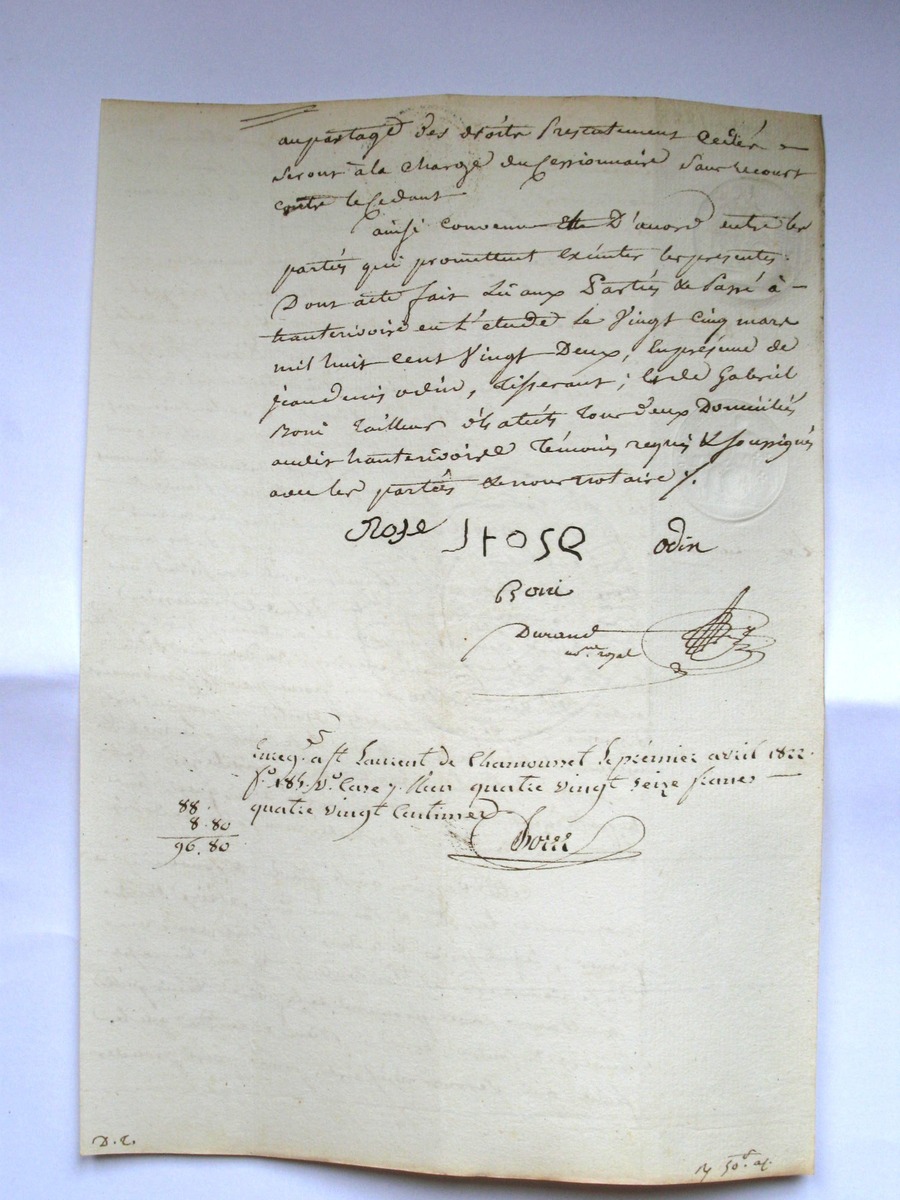 au partage des droits presentement cedés
seront à la charge du cessionnaire sans recours
contre le cedant
ainsi convenu D'accord entre les
partiés qui promettent exécuter les presentes.
Dont acte fait Lû aux Partiés & Passé à
hauterivoire en L'étude Le Vingt Cinq mars
mil huit cent Vingt Deux, En présence de
jean denis odin, tisserant; Et de Gabriel
Boni Tailleur d'habits tous deux Domiciliés
audit hauterivoire Témoins requis & soussignés
avec les partiés & nous notaire
Rose Rose odin
Boni
Durand
no.re royal
Enreg.é a St Laurent de Chamousset le prémier avril 1822.
f.o 185. v.o Case 7. Reçu quatre vingt seize francs
quatre vingt Centimes
88.
8.80
96.80
D.C.